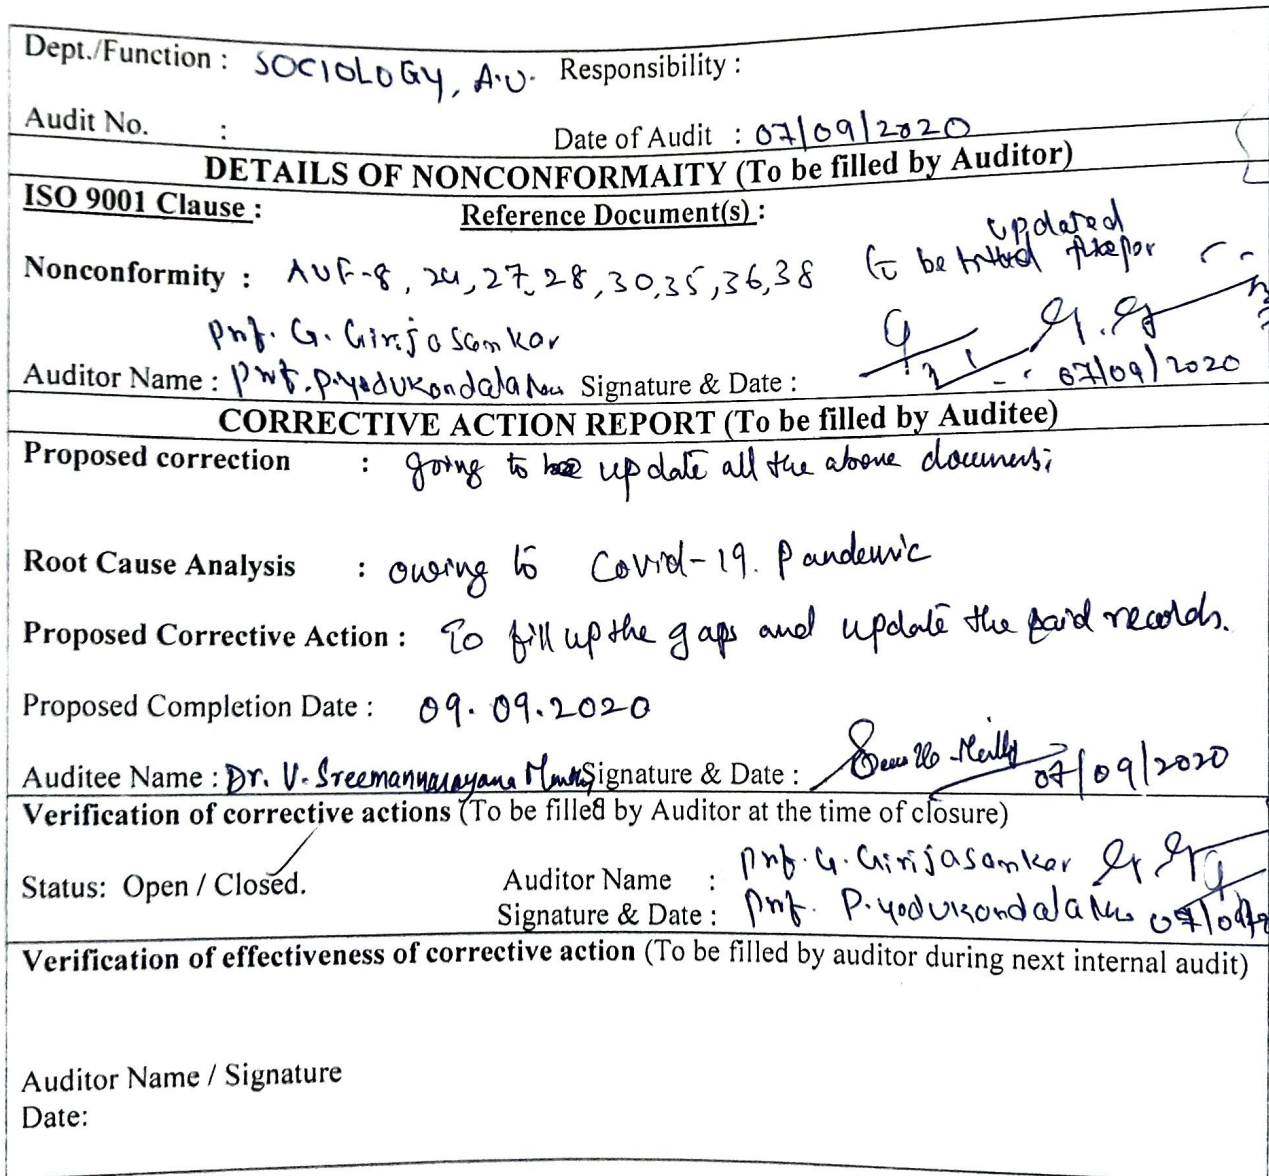 Dept./Function : SOCIOLOGY, A.U. Responsibility :
Audit No. : Date of Audit : 07/09/2020
DETAILS OF NONCONFORMAITY (To be filled by Auditor)
ISO 9001 Clause : Reference Document(s) :
updated
Nonconformity : AUF-8, 24, 27, 28, 30, 35, 36, 38 to be
Prof. G. Girijasankar
Auditor Name : Prof. P. Yedukondala Signature & Date : 07/09/2020
CORRECTIVE ACTION REPORT (To be filled by Auditee)
Proposed correction : going to update all the above
Root Cause Analysis : owing to Covid-19. Pandemic
Proposed Corrective Action : To fill up the gaps and update the said records.
Proposed Completion Date : 09.09.2020
Auditee Name : Dr. V. Sreemannarayana Signature & Date : 07/09/2020
Verification of corrective actions (To be filled by Auditor at the time of closure)
Status: Open / Closed. Auditor Name : Prof. G. Girijasankar
Signature & Date : Prof. P. Yedukondala
Verification of effectiveness of corrective action (To be filled by auditor during next internal audit)
Auditor Name / Signature
Date: